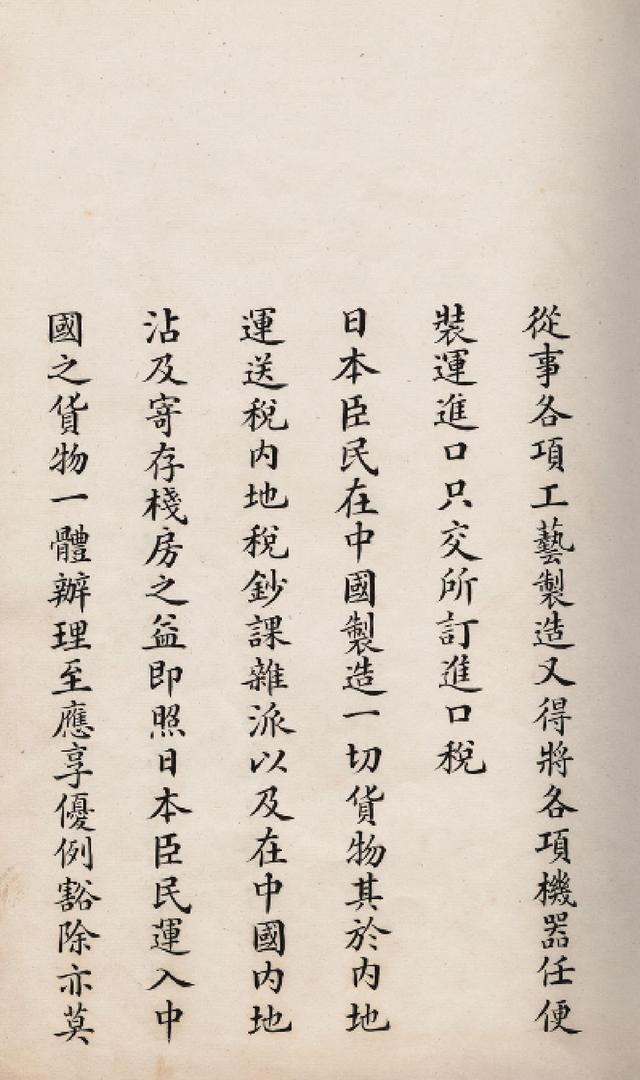 從事各項工藝製造又得將各項機器任便
裝運進口只交所訂進口稅
日本臣民在中國製造一切貨物其於內地
運送稅內地稅鈔課雜派以及在中國內地
沾及寄存棧房之益即照日本臣民運入中
國之貨物一體辦理至應享優例豁除亦莫